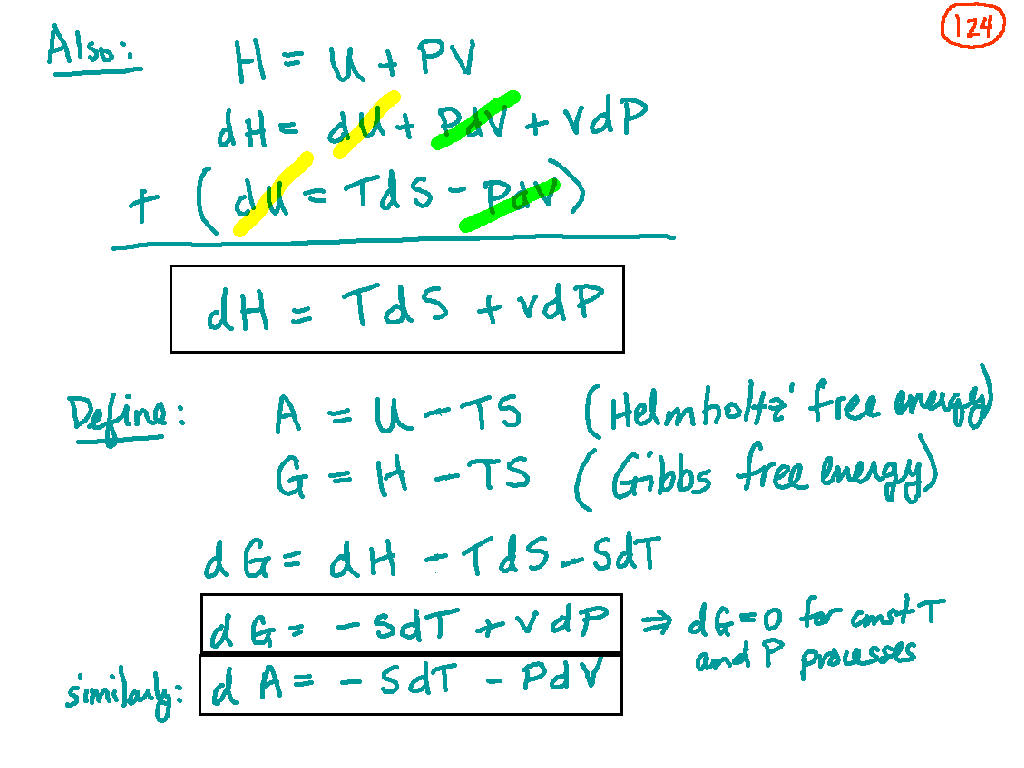 124
Also: H = U + PV
dH = dU + PdV + VdP
+ ( dU = TdS - PdV )
dH = TdS + VdP
Define: A = U - TS (Helmholtz' free energy)
G = H - TS (Gibbs free energy)
dG = dH - TdS - SdT
dG = - SdT + VdP ⇒ dG = 0 for const T
and P processes
similarly: dA = - SdT - PdV